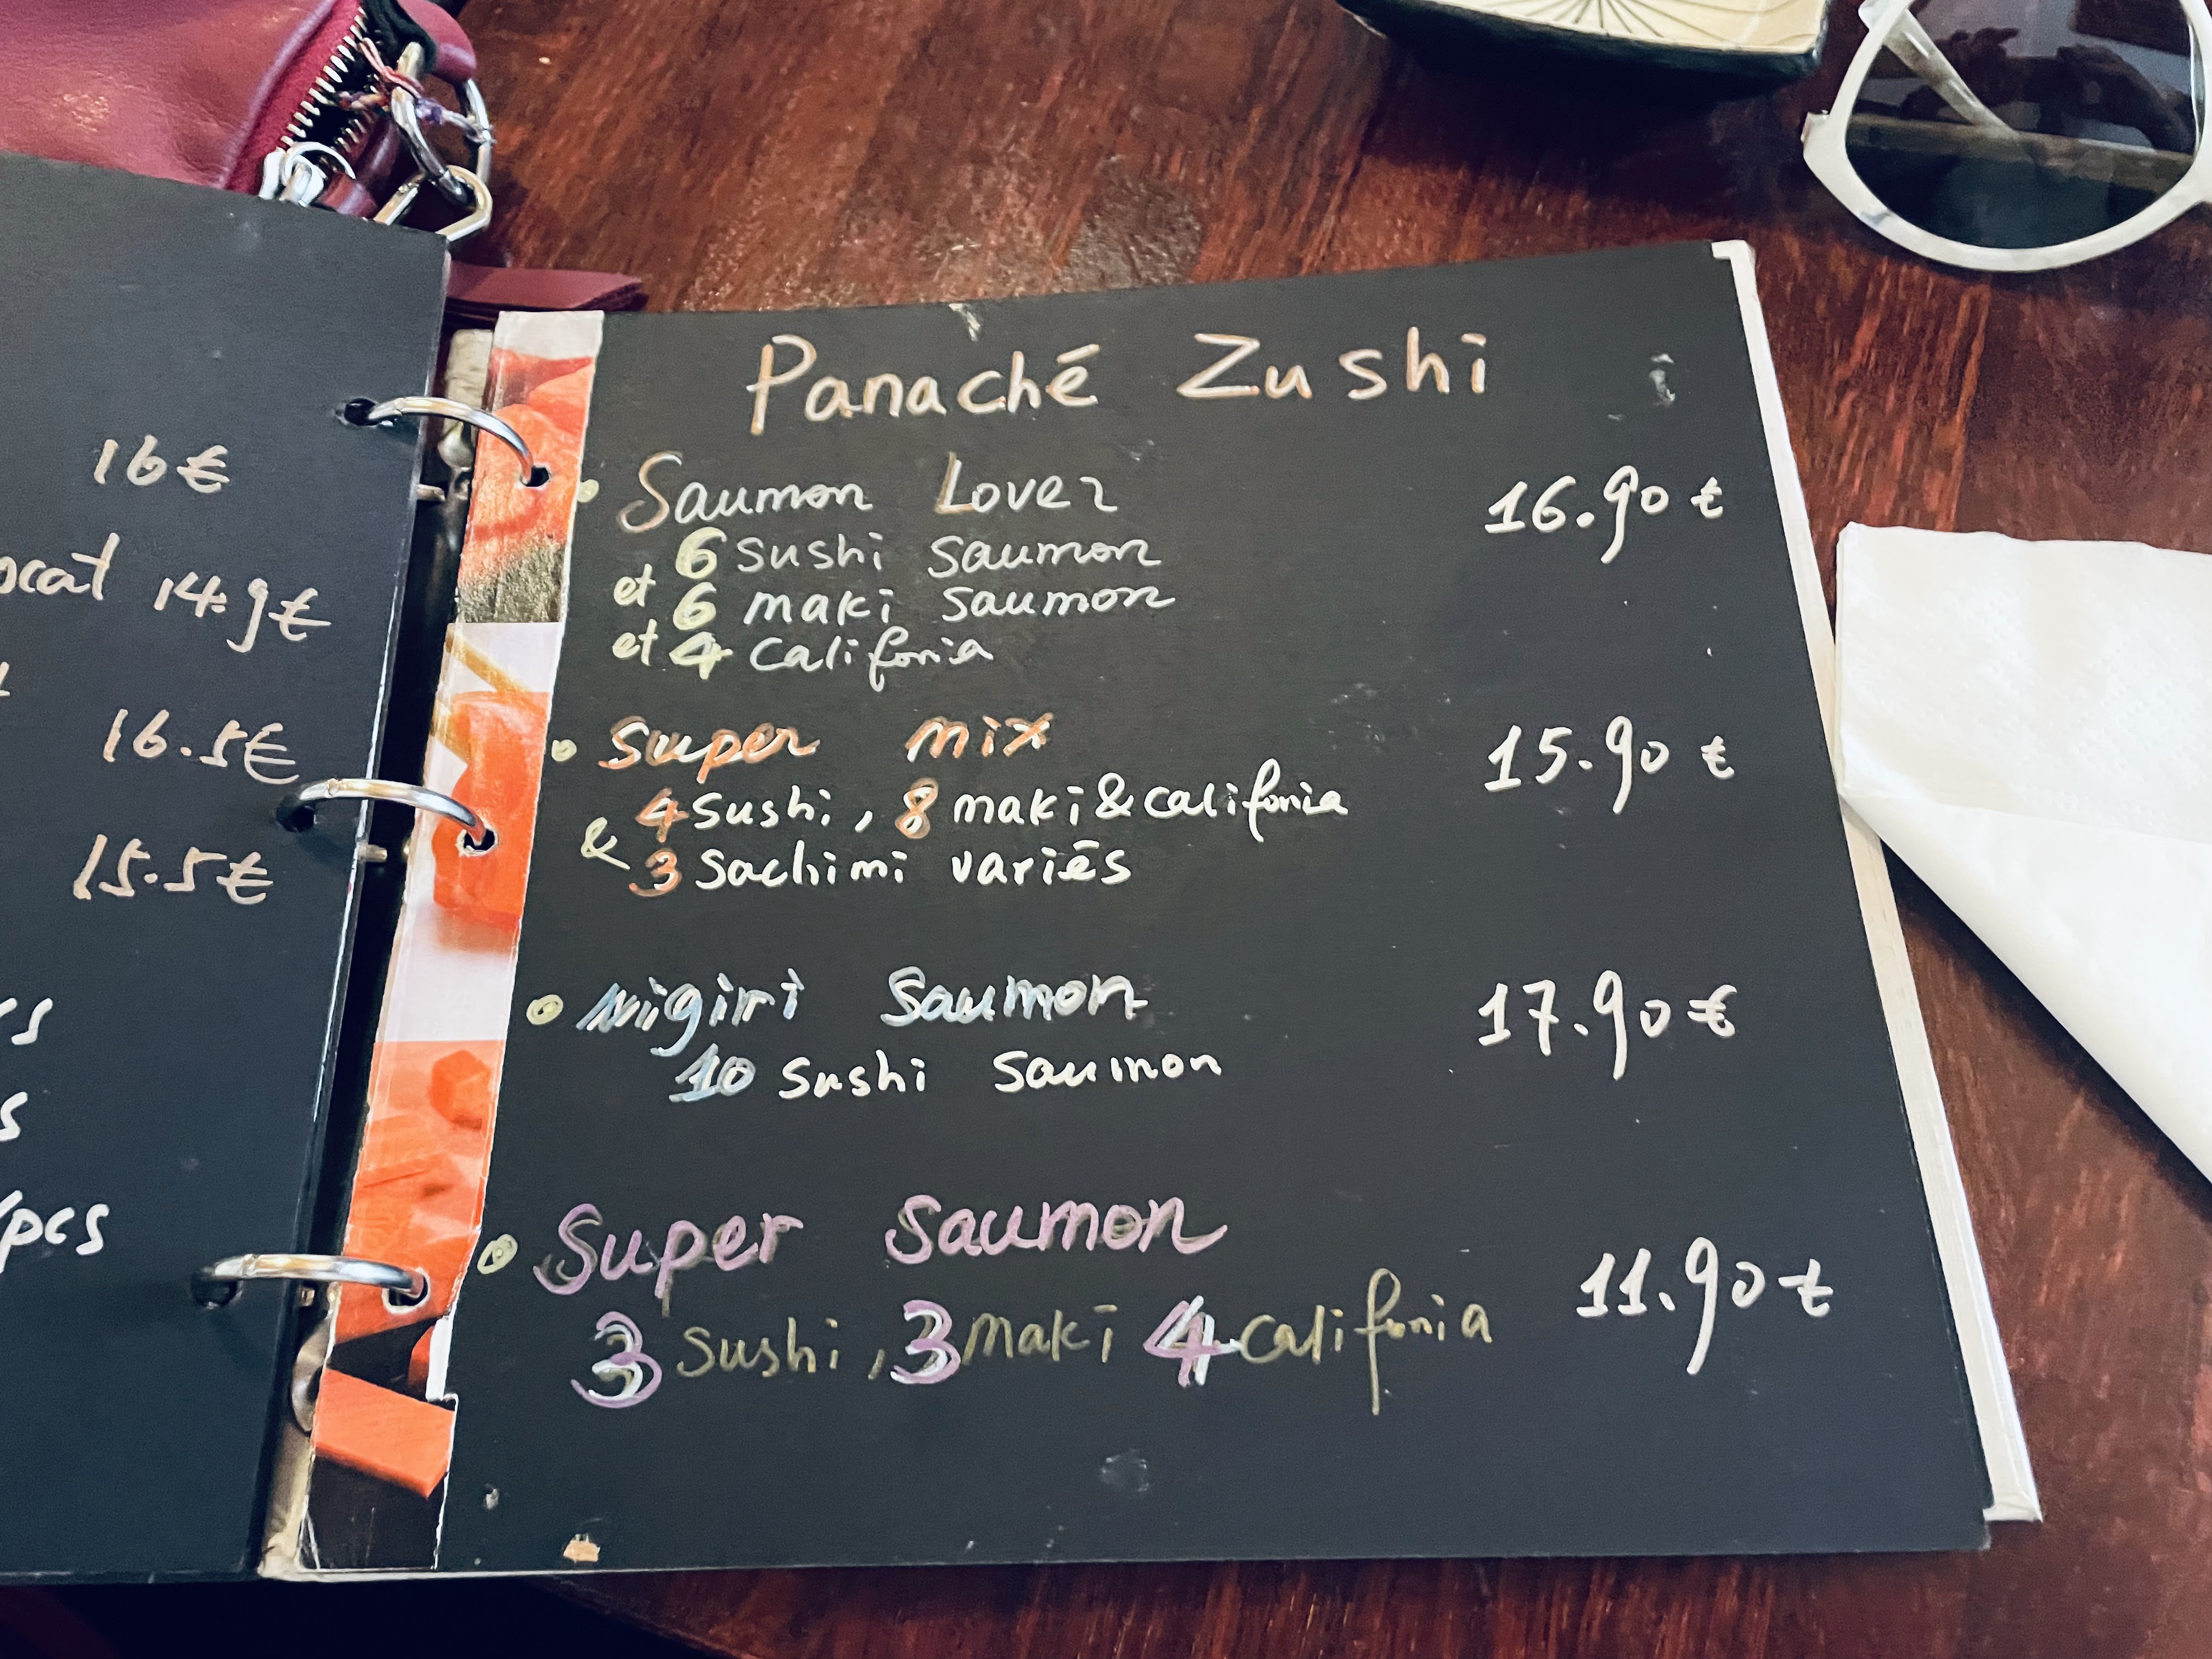 16€
14.9€
16.5€
15.5€
pcs
Panaché Zushi
Saumon Lover 16.90 €
6 sushi saumon
et 6 maki saumon
et 4 califonia
Super mix 15.90 €
4 sushi, 8 maki & califonia
& 3 sachimi variés
Nigiri Saumon 17.90 €
10 sushi saumon
Super Saumon 11.90 €
3 sushi, 3 maki 4 califonia